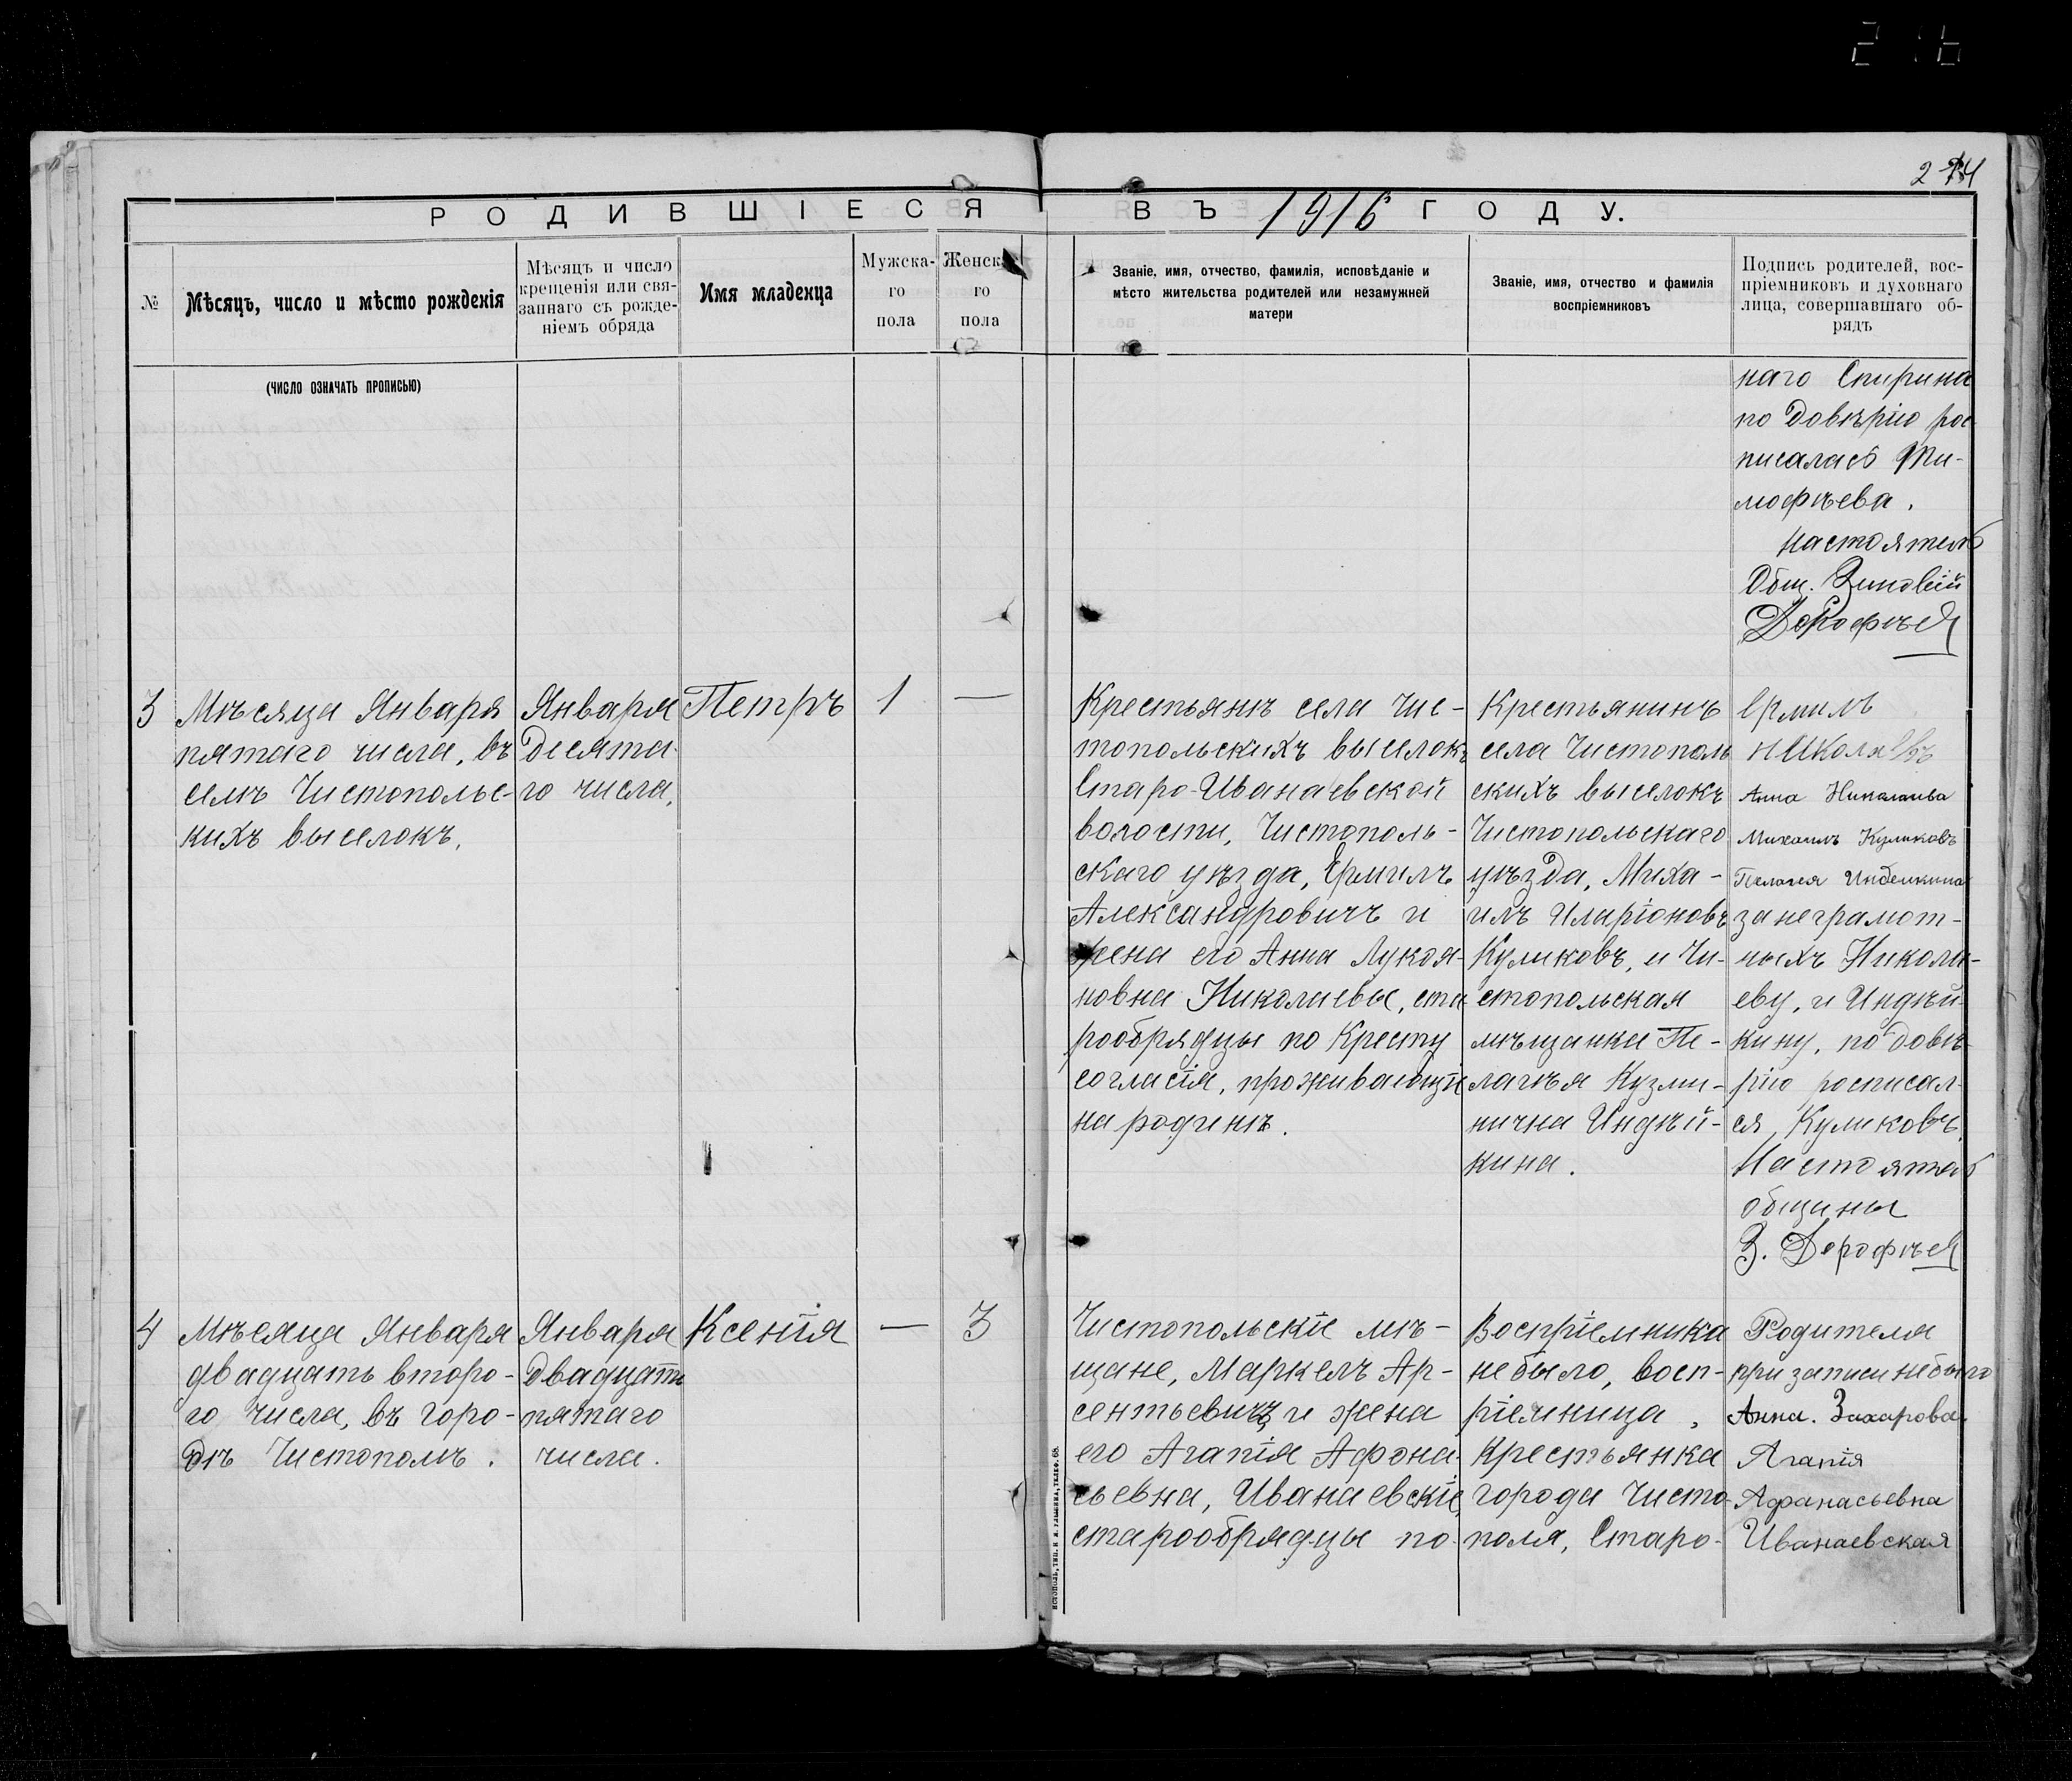 216
274
РОДИВШІЕСЯ ВЪ 1916 ГОДУ.
№
Мѣсяцъ, число и мѣсто рожденія
Мѣсяцъ и число
крещенія или свя-
заннаго съ рожде-
ніемъ обряда
Имя младенца
Мужска-
го
пола
Женска-
го
пола
Званіе, имя, отчество, фамилія, исповѣданіе и
мѣсто жительства родителей или незамужней
матери
Званіе, имя, отчество и фамилія
воспріемниковъ
Подпись родителей, вос-
пріемниковъ и духовнаго
лица, совершавшаго об-
рядъ
(ЧИСЛО ОЗНАЧАТЬ ПРОПИСЬЮ)
наго Спирина
по довѣрію рос
писалась Ти-
мофѣева.
Настоятель
Общ. Зиновій
Дорофѣев
3
Мѣсяца Января
пятаго числа, въ
селѣ Чистопольс-
кихъ выселокъ.
Января
десята-
го числа,
Петръ
1
—
Крестьянъ села Чис-
топольскихъ выселокъ
Старо-Иванаевской
волости, Чистополь-
скаго уѣзда, Ермилъ
Александровичъ и
жена его Анна Лукоя-
новна Николаевы, ста
рообрядцы по Кресту
согласія, проживающіе
на родинѣ.
Крестьянинъ
села Чистополь
скихъ выселокъ
Чистопольскаго
уѣзда, Миха-
илъ Иларіоновъ
Куликовъ, и Чи-
стопольская
мѣщанка Пе-
лагѣя Кузми-
нична Индѣй-
кина.
Ермилъ
Николаевъ
Анна Николаива
Михаилъ Куликовъ
Пелагея Индейкина
за неграмот-
ныхъ Никола-
еву, и Индѣй-
кину, по довѣ-
рію росписал-
ся, Куликовъ.
Настоятель
общины
З. Дорофѣев
4
Мѣсяца Января
двадцать второ-
го числа, въ горо-
дѣ Чистополѣ.
Января
двадцать
пятаго
числа.
Ксенія
—
3
Чистопольскіе мѣ-
щане, Маркелъ Ар-
сентьевичъ и жена
его Агапія Афона-
сьевна, Иванаевскіе,
старообрядцы по-
Воспріемника
не было, восп-
ріемница,
Крестьянка
города Чисто-
поля, Старо-
Родителя
при записи не было
Анна. Захарова.
Агапія
Афанасьевна
Иванаевская